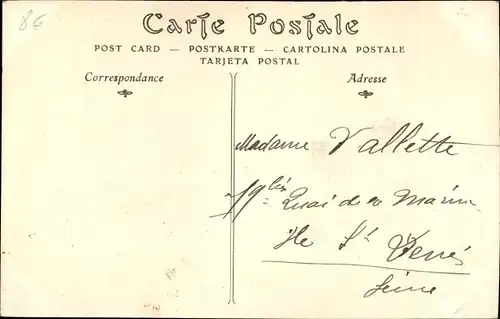 8€
Carte Postale
POST CARD — POSTKARTE — CARTOLINA POSTALE
TARJETA POSTAL
Correspondance
Adresse
Madame Vallette
19 bis Quai de la Marine
Ile St Denis
Seine